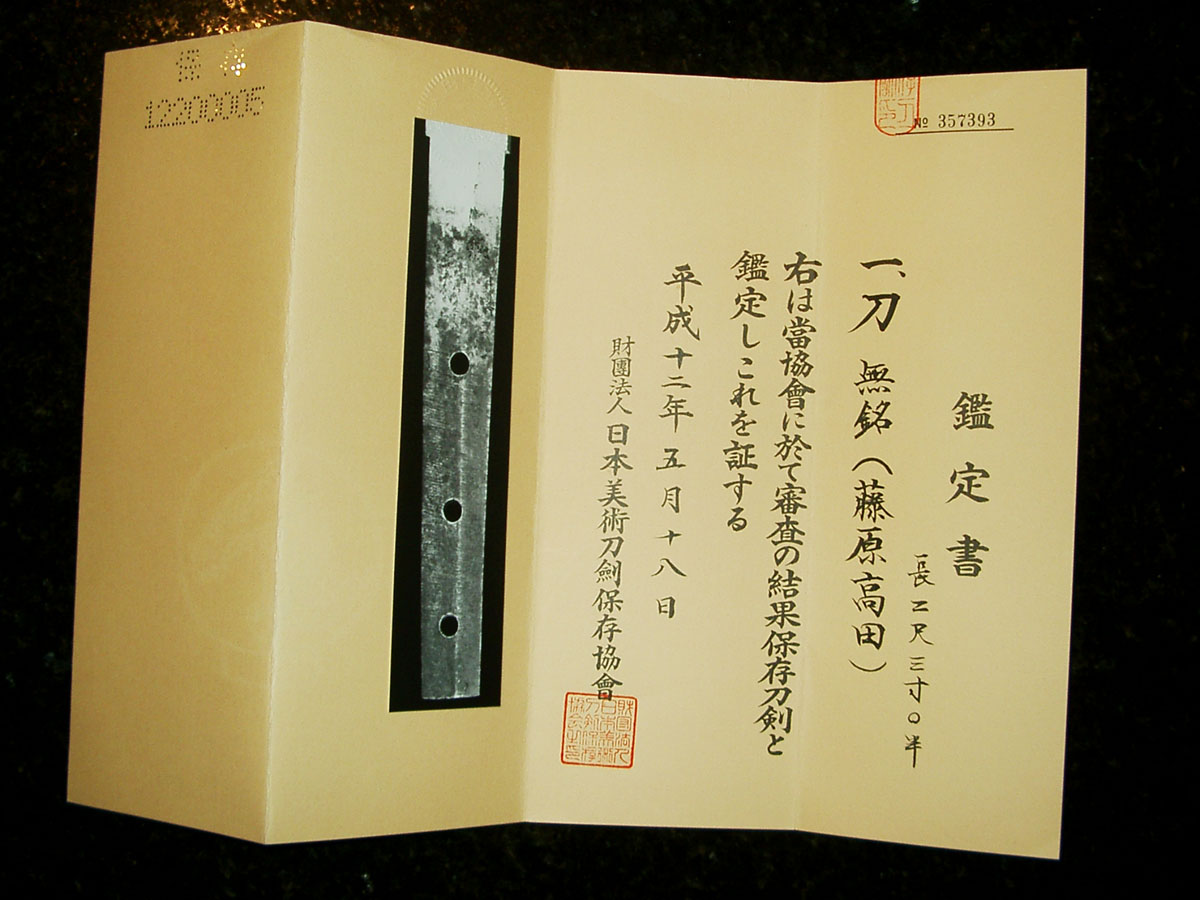 保存
12200005
№ 357393
鑑定書
一、刀 無銘(藤原高田)
長二尺三寸〇半
右は當協會に於て審査の結果保存刀剣と
鑑定しこれを証する
平成十二年五月十八日
財團法人日本美術刀劍保存協會